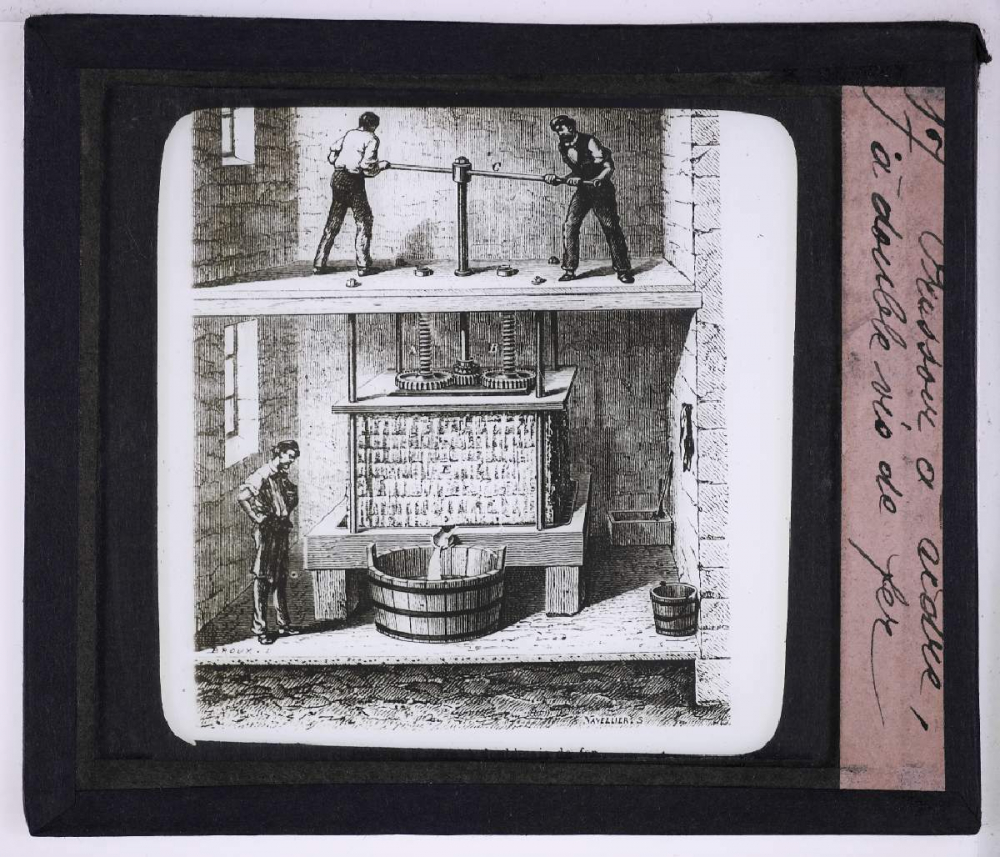 Pressoir à cidre
à double vis de fer
C
A
B
E
BROUX.
NAVELLIER. S